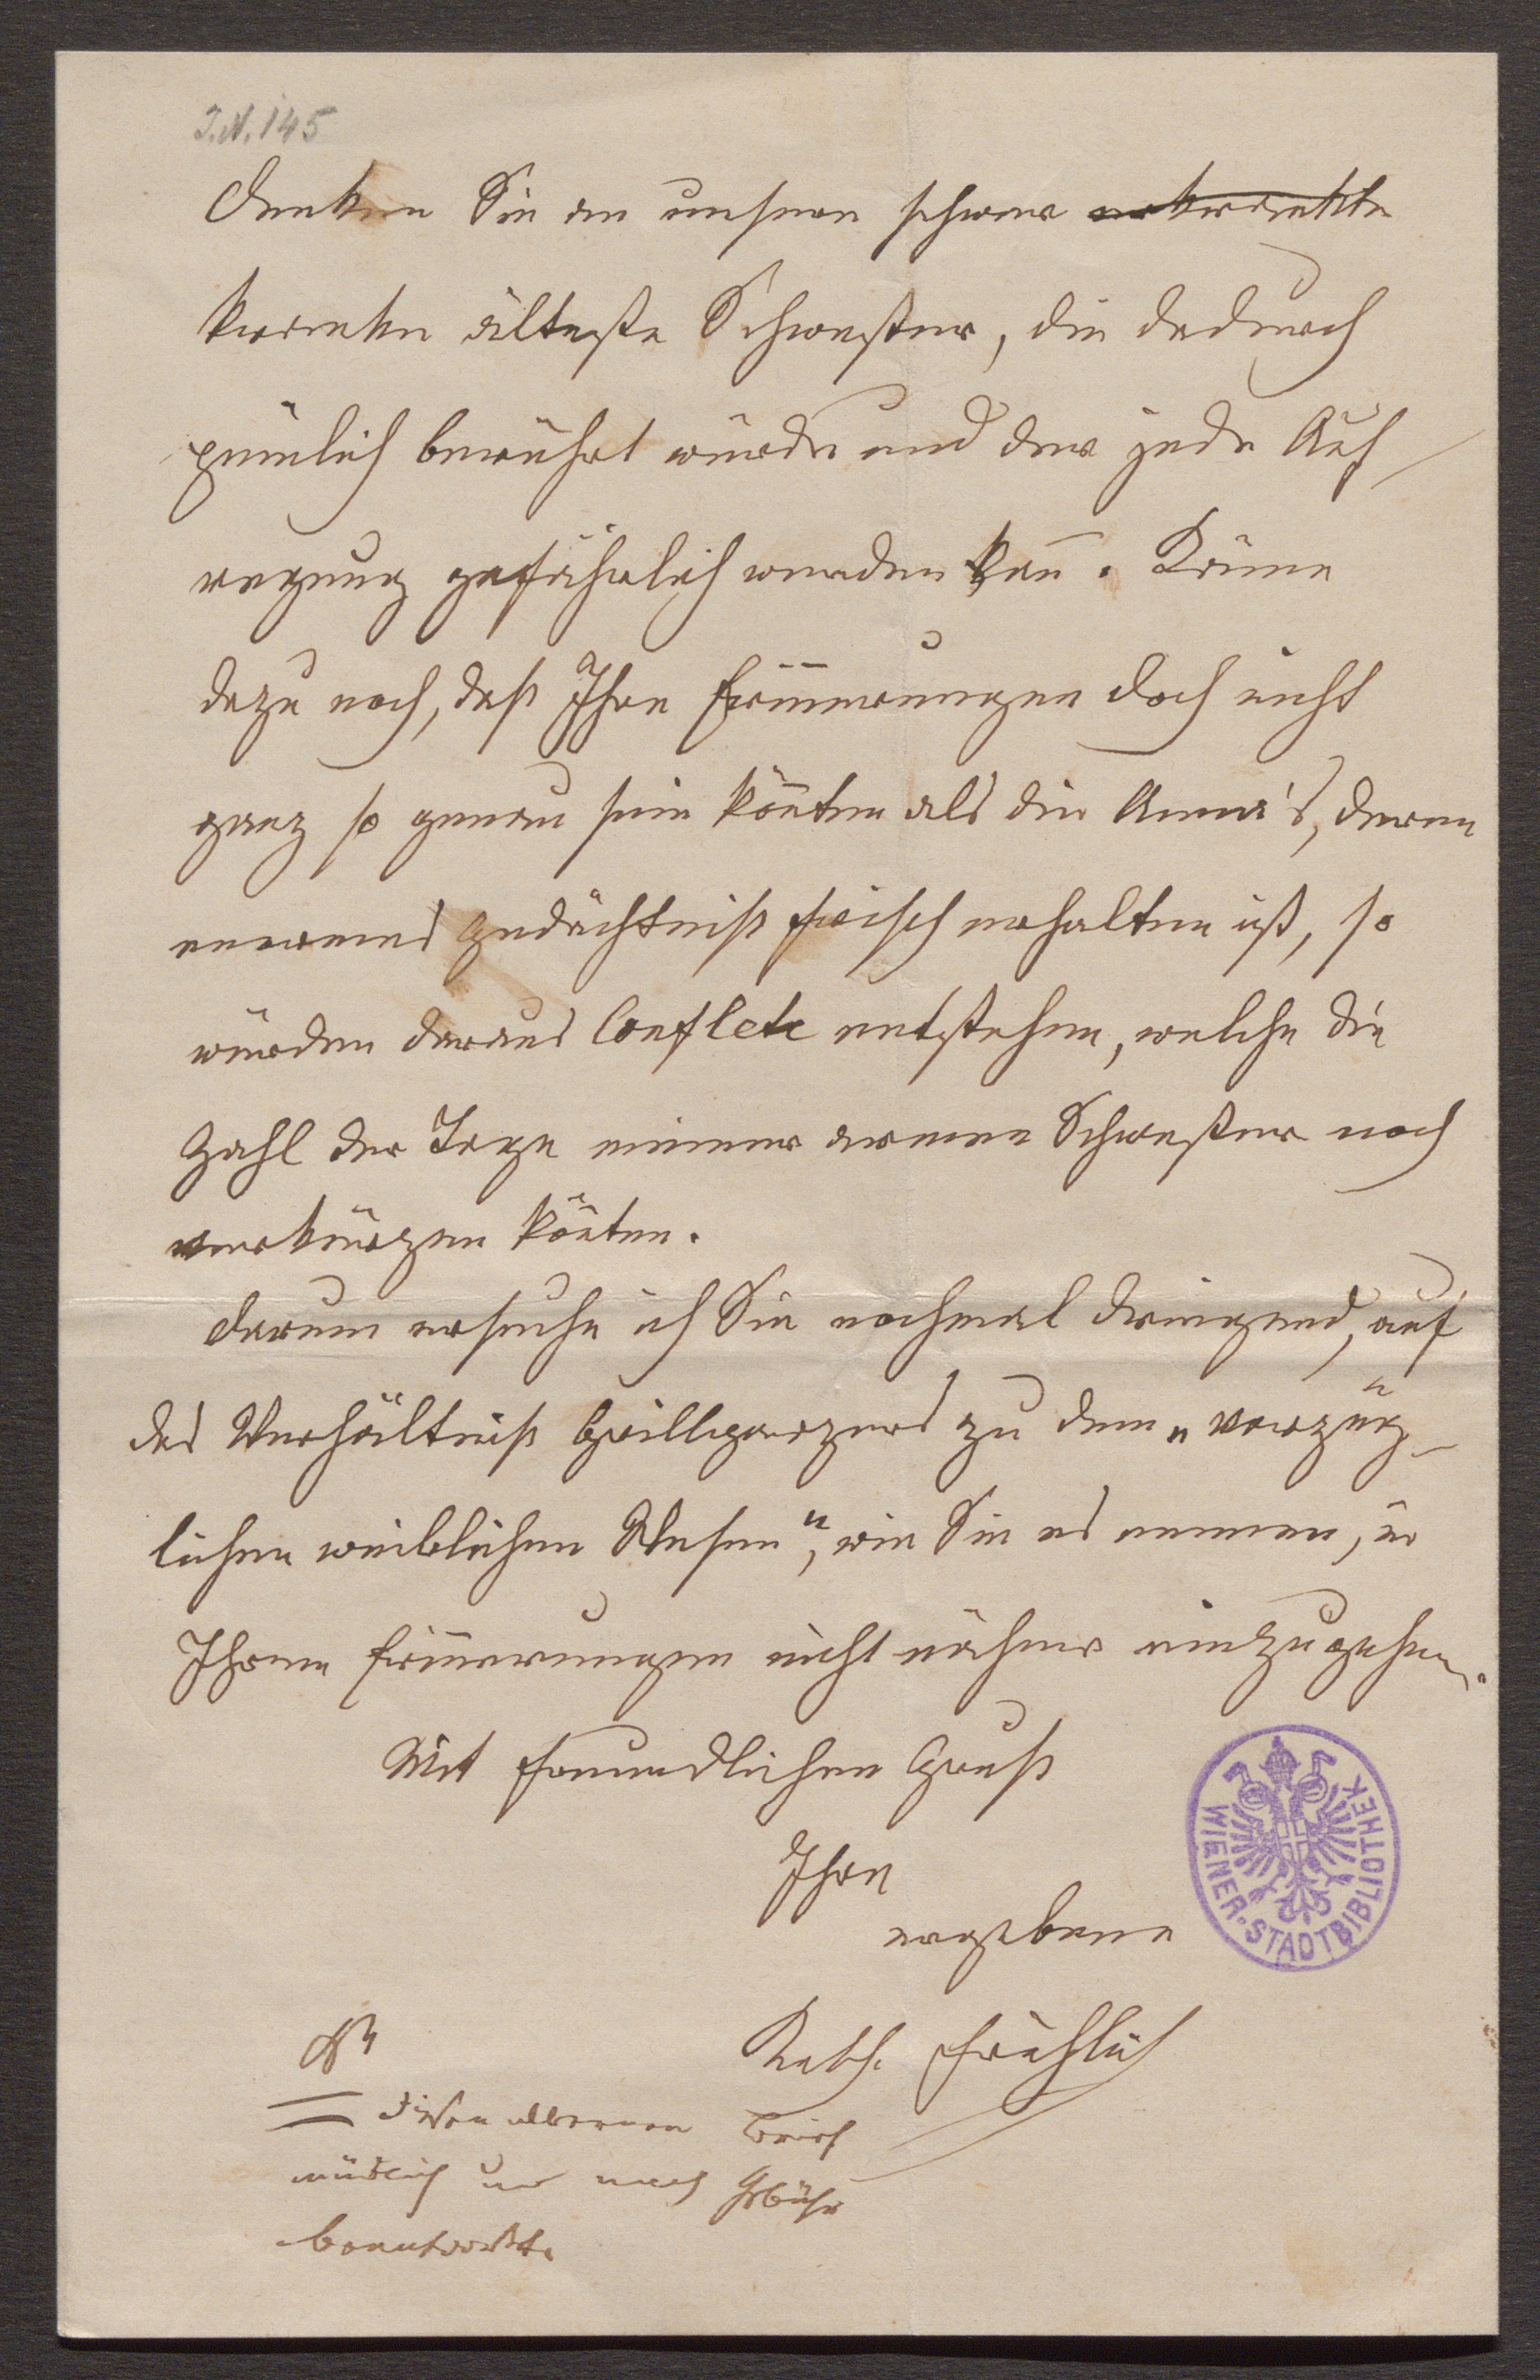 I.N. 145
Denken Sie an unsere schwer erkrankte
kranke älteste Schwester, die dadurch
peinlich berührt würde und der jede Auf-
regung gefährlich werden kan̄. Käme
dazu noch, daß Ihre Erin̄erungen doch nicht
ganz so genau sein kön̄ten als die Anna's, deren
enormes Gedächtniß frisch erhalten ist, so
würden daraus Conflete entstehen, welche die
Zahl der Tage meiner armen Schwester noch
verkürzen kön̄ten.
Darum ersuche ich Sie nochmal dringend, auf
das Verhältniß Grillparzers zu dem „vorzüg-
lichen weiblichen Wesen", wie Sie es nennen, in
Ihren Erin̄erungen nicht näher einzugehen.
Mit freundlichen Gruß
Ihre
ergebene
Kath. Fröhlich
NB
Diesen albernen Brief
mündlich und nach Gebühr
beantwortet.
WIENER·STADTBIBLIOTHEK